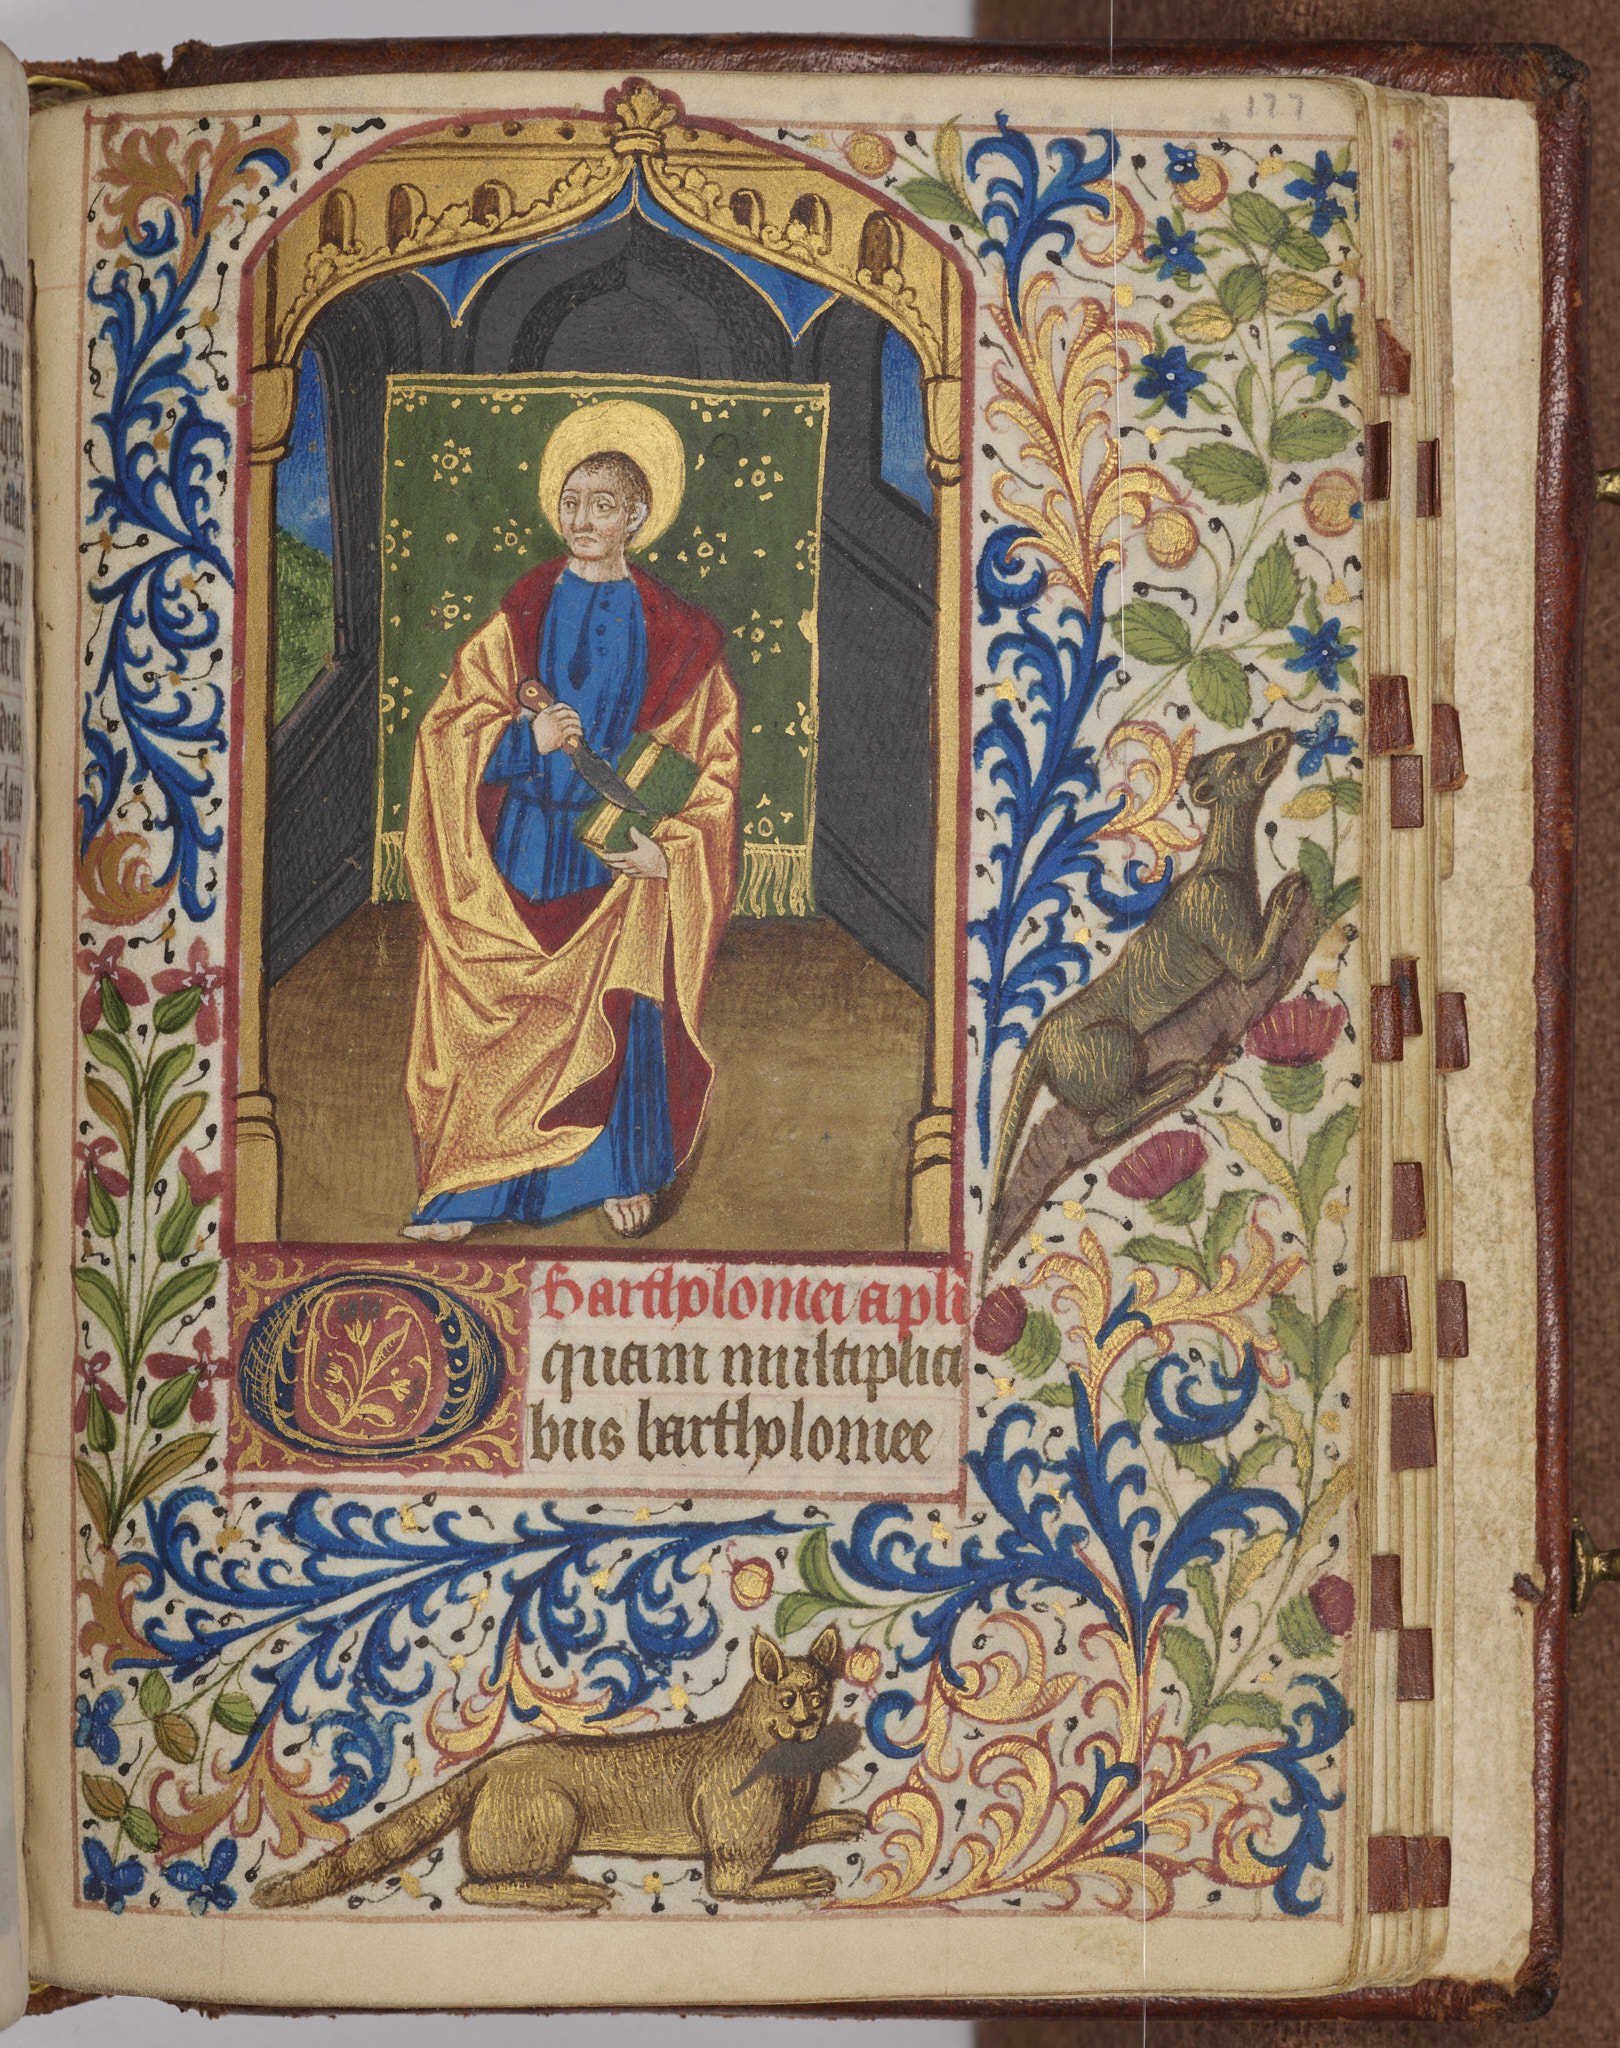 177
Bartholomei apli
O quam multiplici
bus bartholomee